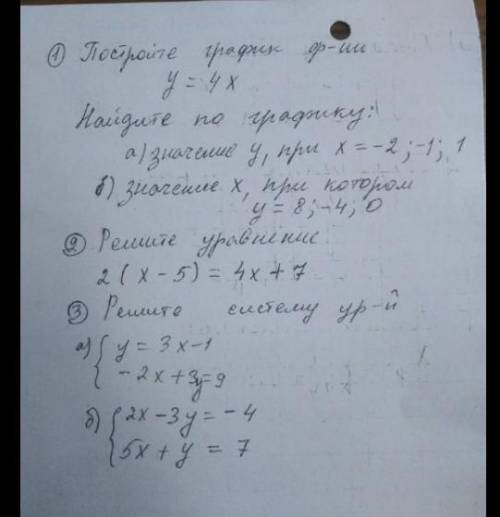 ① Постройте график ф-ии
y = 4x
Найдите по графику:
а) значение y, при x = -2; -1; 1
б) значение x, при котором
y = 8; -4; 0
② Решите уравнение
2(x - 5) = 4x + 7
③ Решите систему ур-й
а) { y = 3x - 1
-2x + 3y = 9
б) { 2x - 3y = -4
5x + y = 7